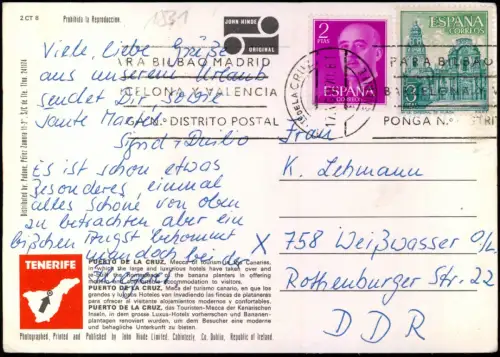 2 CT 6
Prohibida la Reproduccion.
1531
JOHN HINDE
ORIGINAL
2
PTAS
ESPAÑA
CORREO
ESPAÑA
CORREOS
3
PARA BILBAO MADRID
BARCELONA Y VALENCIA
PONGA N.º DISTRITO POSTAL
PARA BILBAO
BARCELONA Y
PONGA N.º DISTRI
Viele, liebe Grüße
aus unserem Urlaub
sendet Dir sowie
Tante Martel
Sigrid + Duilio
Es ist schon etwas
Besonderes, einmal
alles Schöne von oben
zu betrachten aber ein
bißchen Angst bekommt
man doch bei der
X
Frau
K. Lehmann
758 Weißwasser O/L
Rothenburger Str. 22
DDR
TENERIFE
PUERTO DE LA CRUZ, Mecca of tourism in the Canaries,
in which the large and luxurious hotels have taken over and
to the banana planters in offering
accommodation to visitors.
PUERTO DE LA CRUZ, Meca del turismo canario, en que los
grandes y lujosos Hoteles van invadiendo las fincas de plataneras
para ofrecer al visitante alojamientos modernos y confortables.
PUERTO DE LA CRUZ, das Touristen-Mekka der Kanarischen
Inseln, in dem grosse Luxus-Hotels vorherrschen und Bananen-
plantagen renoviert wurden, um dem Besucher eine moderne
und behagliche Unterkunft zu bieten.
Photographed, Printed and Published by John Hinde Limited, Cabinteely, Co. Dublin, Republic of Ireland.